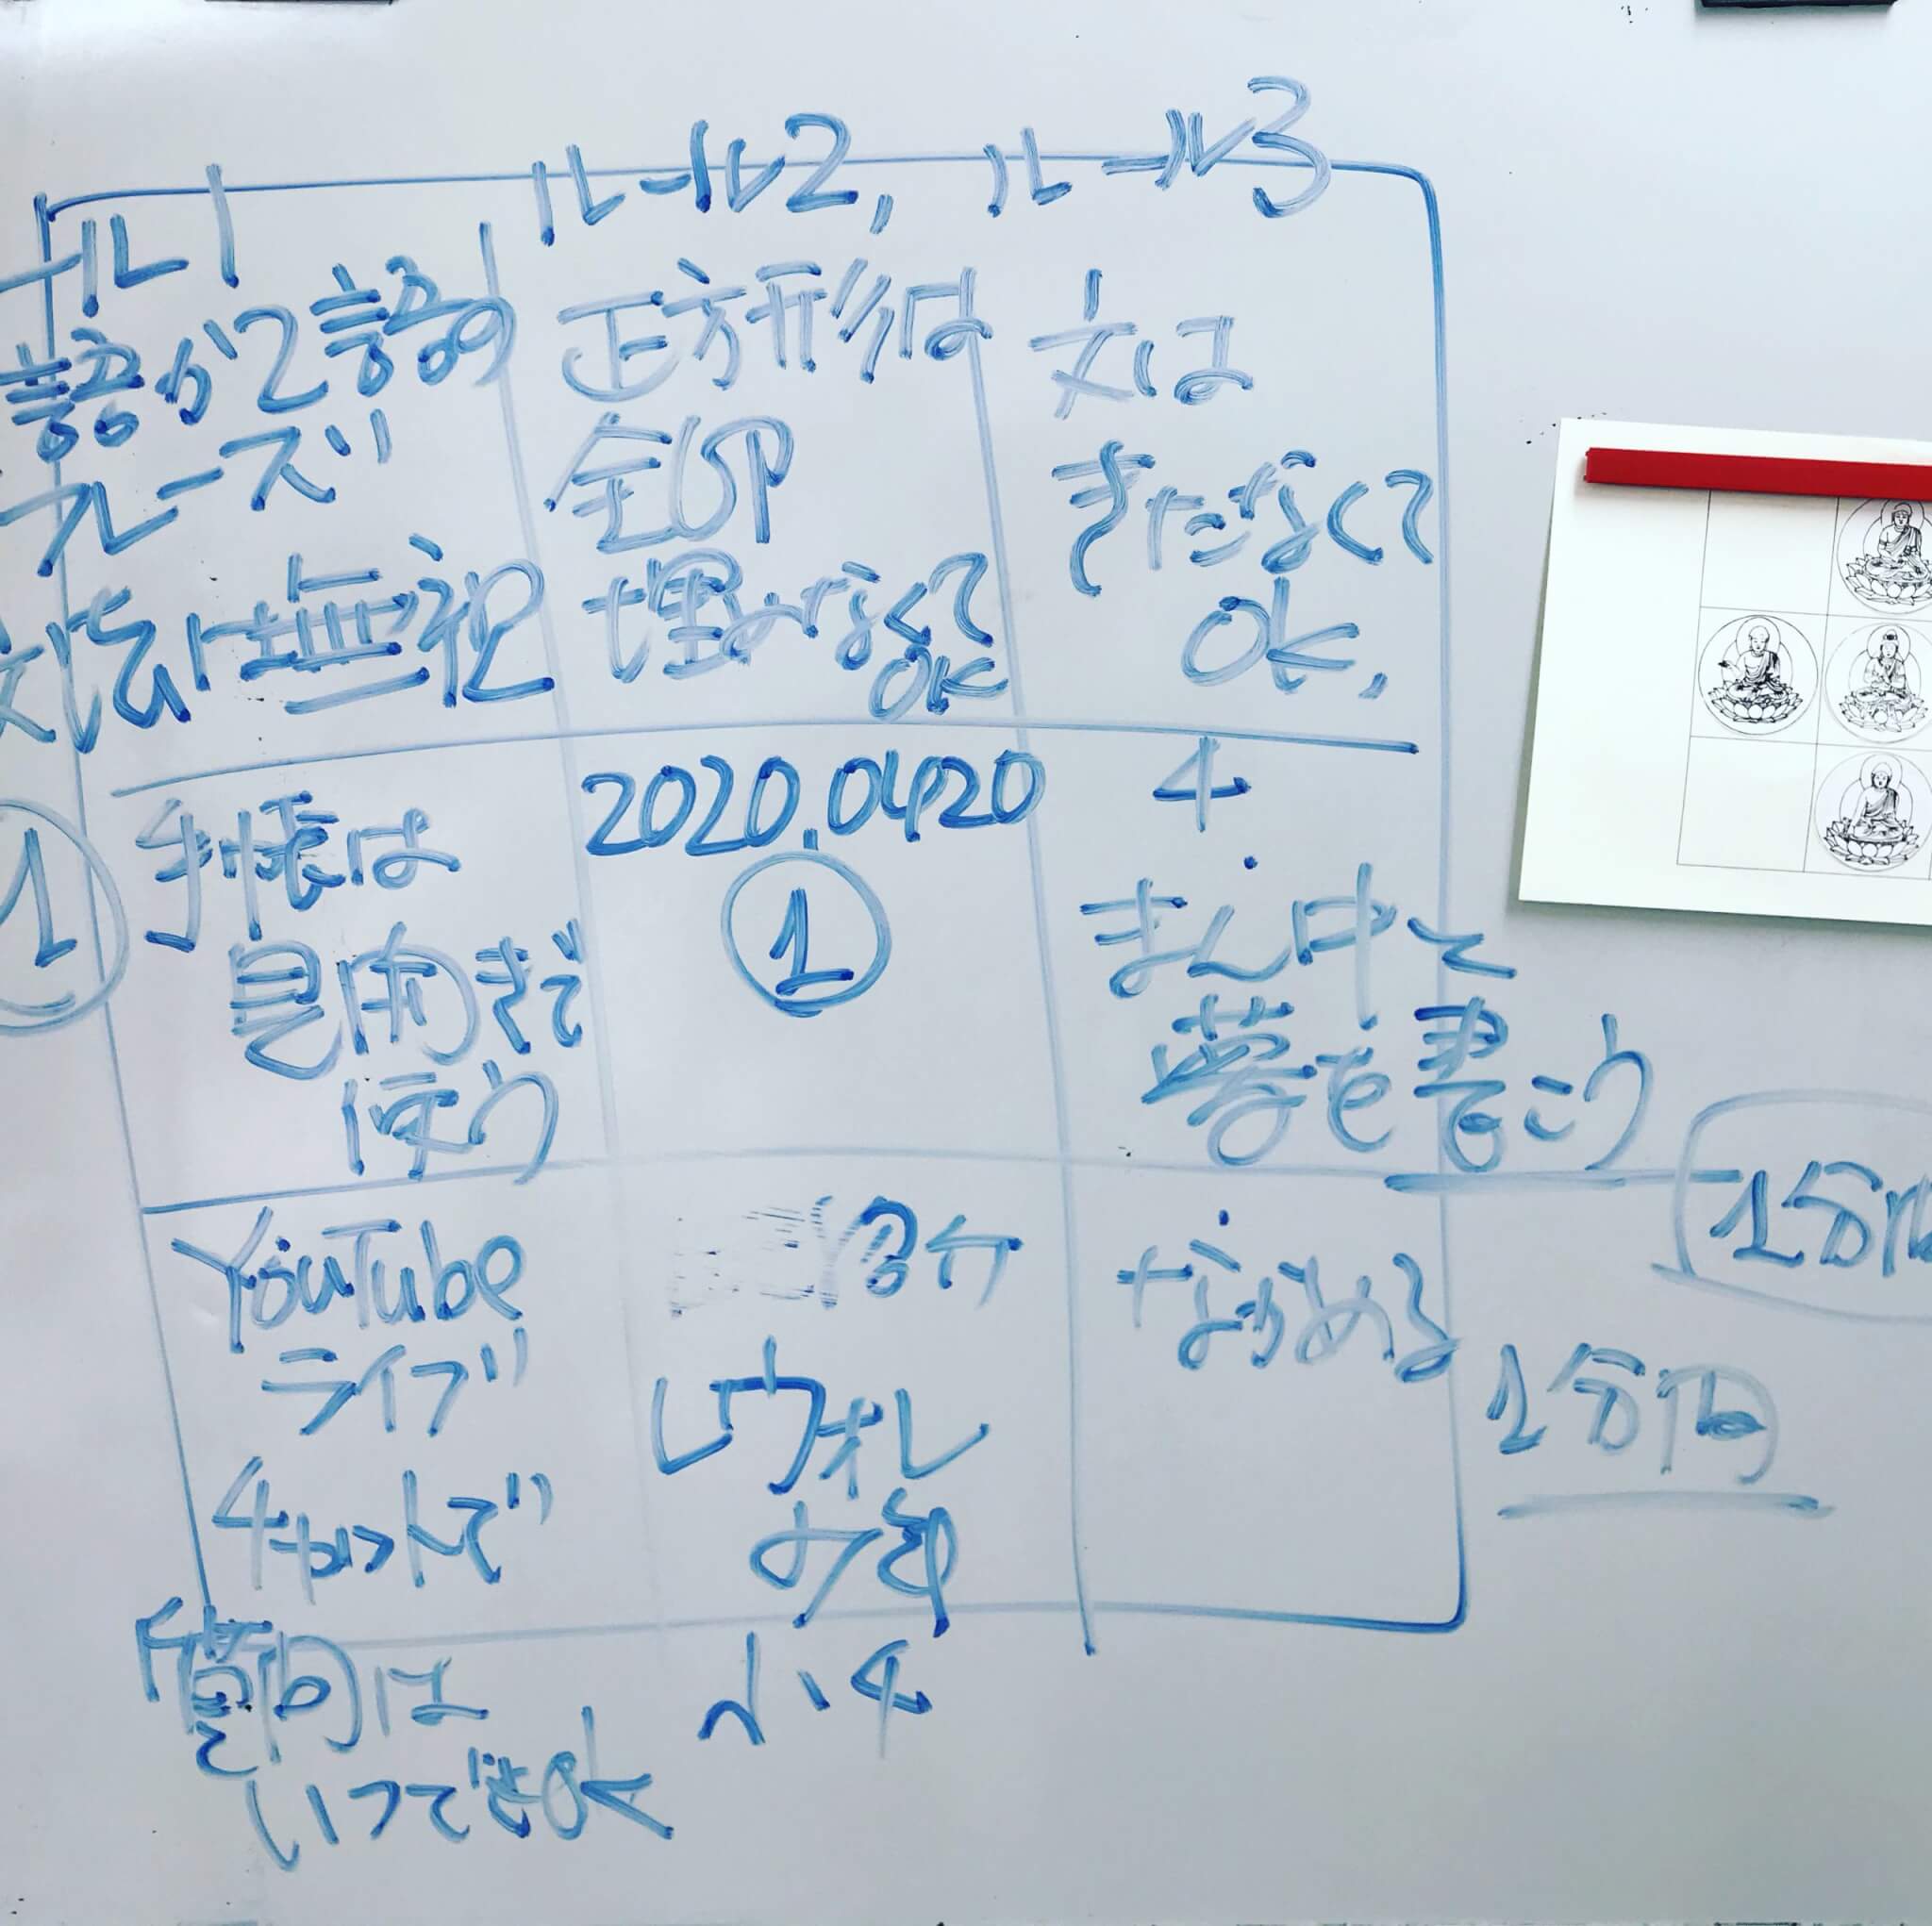 ール1
語か2語の
フレーズ
文法は無視
ルール2,
正方形は
全部
埋めなくて
OK
ルール3
文は
きたなくて
OK,
1
手帳は
見開きで
使う
2020.0420
1
4
まん中に
夢を書こう
YouTube
ライブ
チャットで
質問は
いつでもOK
紹介
ながめる
1分間
1分間